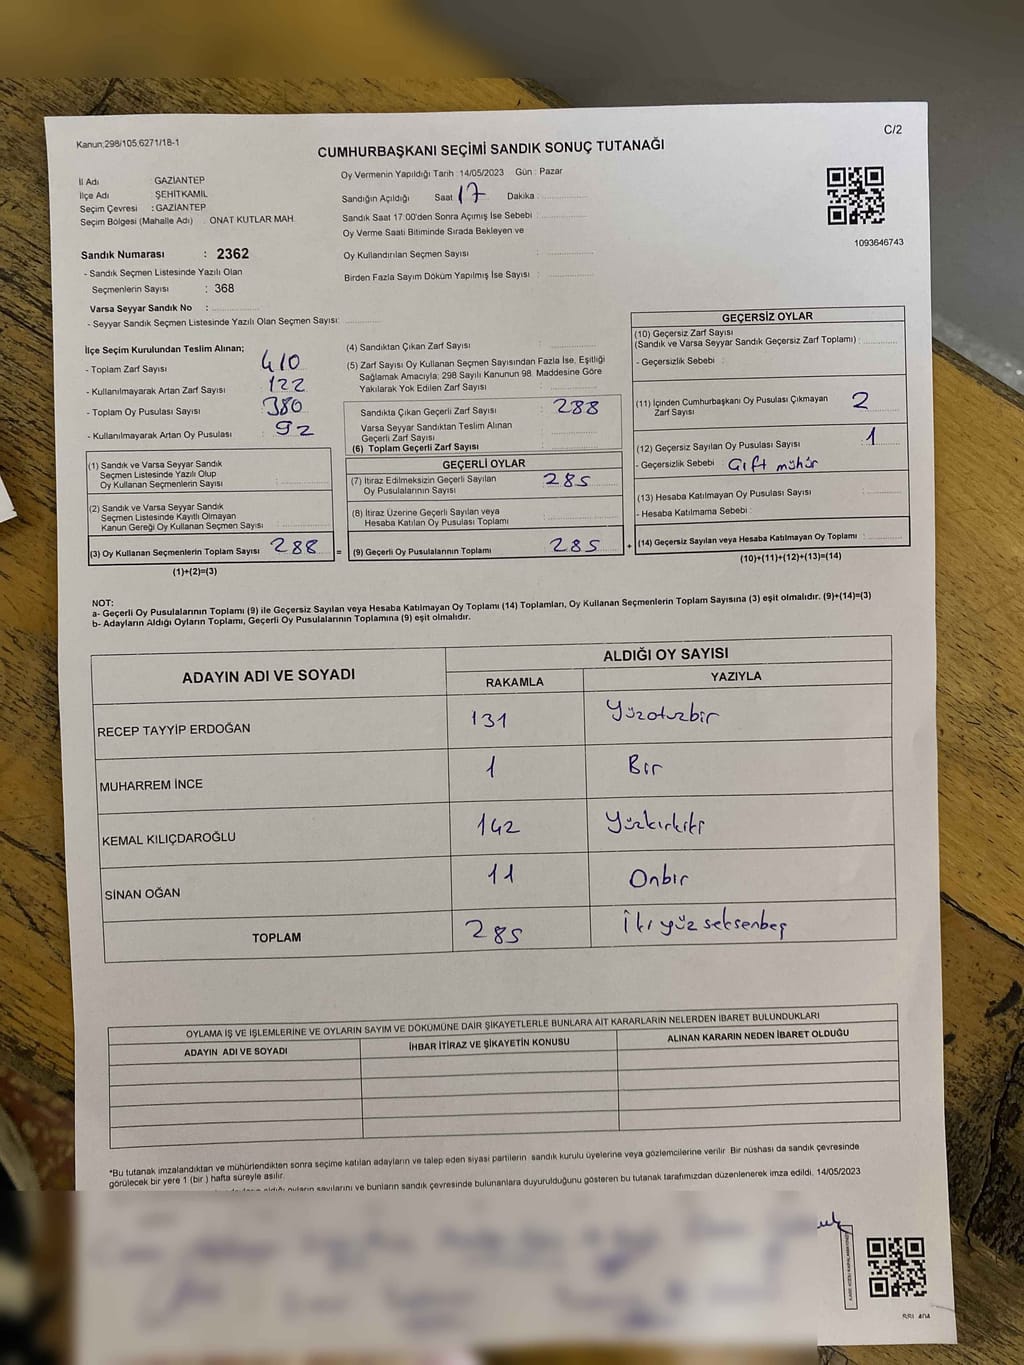 Kanun,298/105,6271/18-1
C/2
CUMHURBAŞKANI SEÇİMİ SANDIK SONUÇ TUTANAĞI
İl Adı : GAZİANTEP
İlçe Adı : ŞEHİTKAMİL
Seçim Çevresi : GAZİANTEP
Seçim Bölgesi (Mahalle Adı) : ONAT KUTLAR MAH.
Oy Vermenin Yapıldığı Tarih : 14/05/2023 Gün : Pazar
Sandığın Açıldığı Saat : 17 Dakika :
Sandık Saat 17:00'den Sonra Açımış İse Sebebi :
Oy Verme Saati Bitiminde Sırada Bekleyen ve
Oy Kullandırılan Seçmen Sayısı :
Birden Fazla Sayım Döküm Yapılmış İse Sayısı :
1093646743
Sandık Numarası : 2362
- Sandık Seçmen Listesinde Yazılı Olan
Seçmenlerin Sayısı : 368
Varsa Seyyar Sandık No :
- Seyyar Sandık Seçmen Listesinde Yazılı Olan Seçmen Sayısı:
İlçe Seçim Kurulundan Teslim Alınan;
- Toplam Zarf Sayısı : 410
- Kullanılmayarak Artan Zarf Sayısı : 122
- Toplam Oy Pusulası Sayısı : 380
- Kullanılmayarak Artan Oy Pusulası : 92
(1) Sandık ve Varsa Seyyar Sandık
Seçmen Listesinde Yazılı Olup
Oy Kullanan Seçmenlerin Sayısı :
(2) Sandık ve Varsa Seyyar Sandık
Seçmen Listesinde Kayıtlı Olmayan
Kanun Gereği Oy Kullanan Seçmen Sayısı :
(3) Oy Kullanan Seçmenlerin Toplam Sayısı : 288 =
(1)+(2)=(3)
(4) Sandıktan Çıkan Zarf Sayısı :
(5) Zarf Sayısı Oy Kullanan Seçmen Sayısından Fazla İse, Eşitliği
Sağlamak Amacıyla; 298 Sayılı Kanunun 98. Maddesine Göre
Yakılarak Yok Edilen Zarf Sayısı :
Sandıkta Çıkan Geçerli Zarf Sayısı : 288
Varsa Seyyar Sandıktan Teslim Alınan
Geçerli Zarf Sayısı :
(6) Toplam Geçerli Zarf Sayısı :
GEÇERLİ OYLAR
(7) İtiraz Edilmeksizin Geçerli Sayılan
Oy Pusulalarının Sayısı : 285
(8) İtiraz Üzerine Geçerli Sayılan veya
Hesaba Katılan Oy Pusulası Toplamı :
(9) Geçerli Oy Pusulalarının Toplamı : 285 +
GEÇERSİZ OYLAR
(10) Geçersiz Zarf Sayısı
(Sandık ve Varsa Seyyar Sandık Geçersiz Zarf Toplamı) :
- Geçersizlik Sebebi :
(11) İçinden Cumhurbaşkanı Oy Pusulası Çıkmayan
Zarf Sayısı : 2
(12) Geçersiz Sayılan Oy Pusulası Sayısı : 1
- Geçersizlik Sebebi : Çift mühür
(13) Hesaba Katılmayan Oy Pusulası Sayısı :
- Hesaba Katılmama Sebebi :
(14) Geçersiz Sayılan veya Hesaba Katılmayan Oy Toplamı :
(10)+(11)+(12)+(13)=(14)
NOT:
a- Geçerli Oy Pusulalarının Toplamı (9) ile Geçersiz Sayılan veya Hesaba Katılmayan Oy Toplamı (14) Toplamları, Oy Kullanan Seçmenlerin Toplam Sayısına (3) eşit olmalıdır. (9)+(14)=(3)
b- Adayların Aldığı Oyların Toplamı, Geçerli Oy Pusulalarının Toplamına (9) eşit olmalıdır.
ADAYIN ADI VE SOYADI
ALDIĞI OY SAYISI
RAKAMLA YAZIYLA
RECEP TAYYİP ERDOĞAN 131 Yüzotuzbir
MUHARREM İNCE 1 Bir
KEMAL KILIÇDAROĞLU 142 Yüzkırkiki
SİNAN OĞAN 11 Onbir
TOPLAM 285 İkiyüz seksenbeş
OYLAMA İŞ VE İŞLEMLERİNE VE OYLARIN SAYIM VE DÖKÜMÜNE DAİR ŞİKAYETLERLE BUNLARA AİT KARARLARIN NELERDEN İBARET BULUNDUKLARI
ADAYIN ADI VE SOYADI İHBAR İTİRAZ VE ŞİKAYETİN KONUSU ALINAN KARARIN NEDEN İBARET OLDUĞU
*Bu tutanak imzalandıktan ve mühürlendikten sonra seçime katılan adayların ve talep eden siyasi partilerin sandık kurulu üyelerine veya gözlemcilerine verilir. Bir nüshası da sandık çevresinde
görülecek bir yere 1 (bir.) hafta süreyle asılır.
oyların sayılarını ve bunların sandık çevresinde bulunanlara duyurulduğunu gösteren bu tutanak tarafımızdan düzenlenerek imza edildi. 14/05/2023